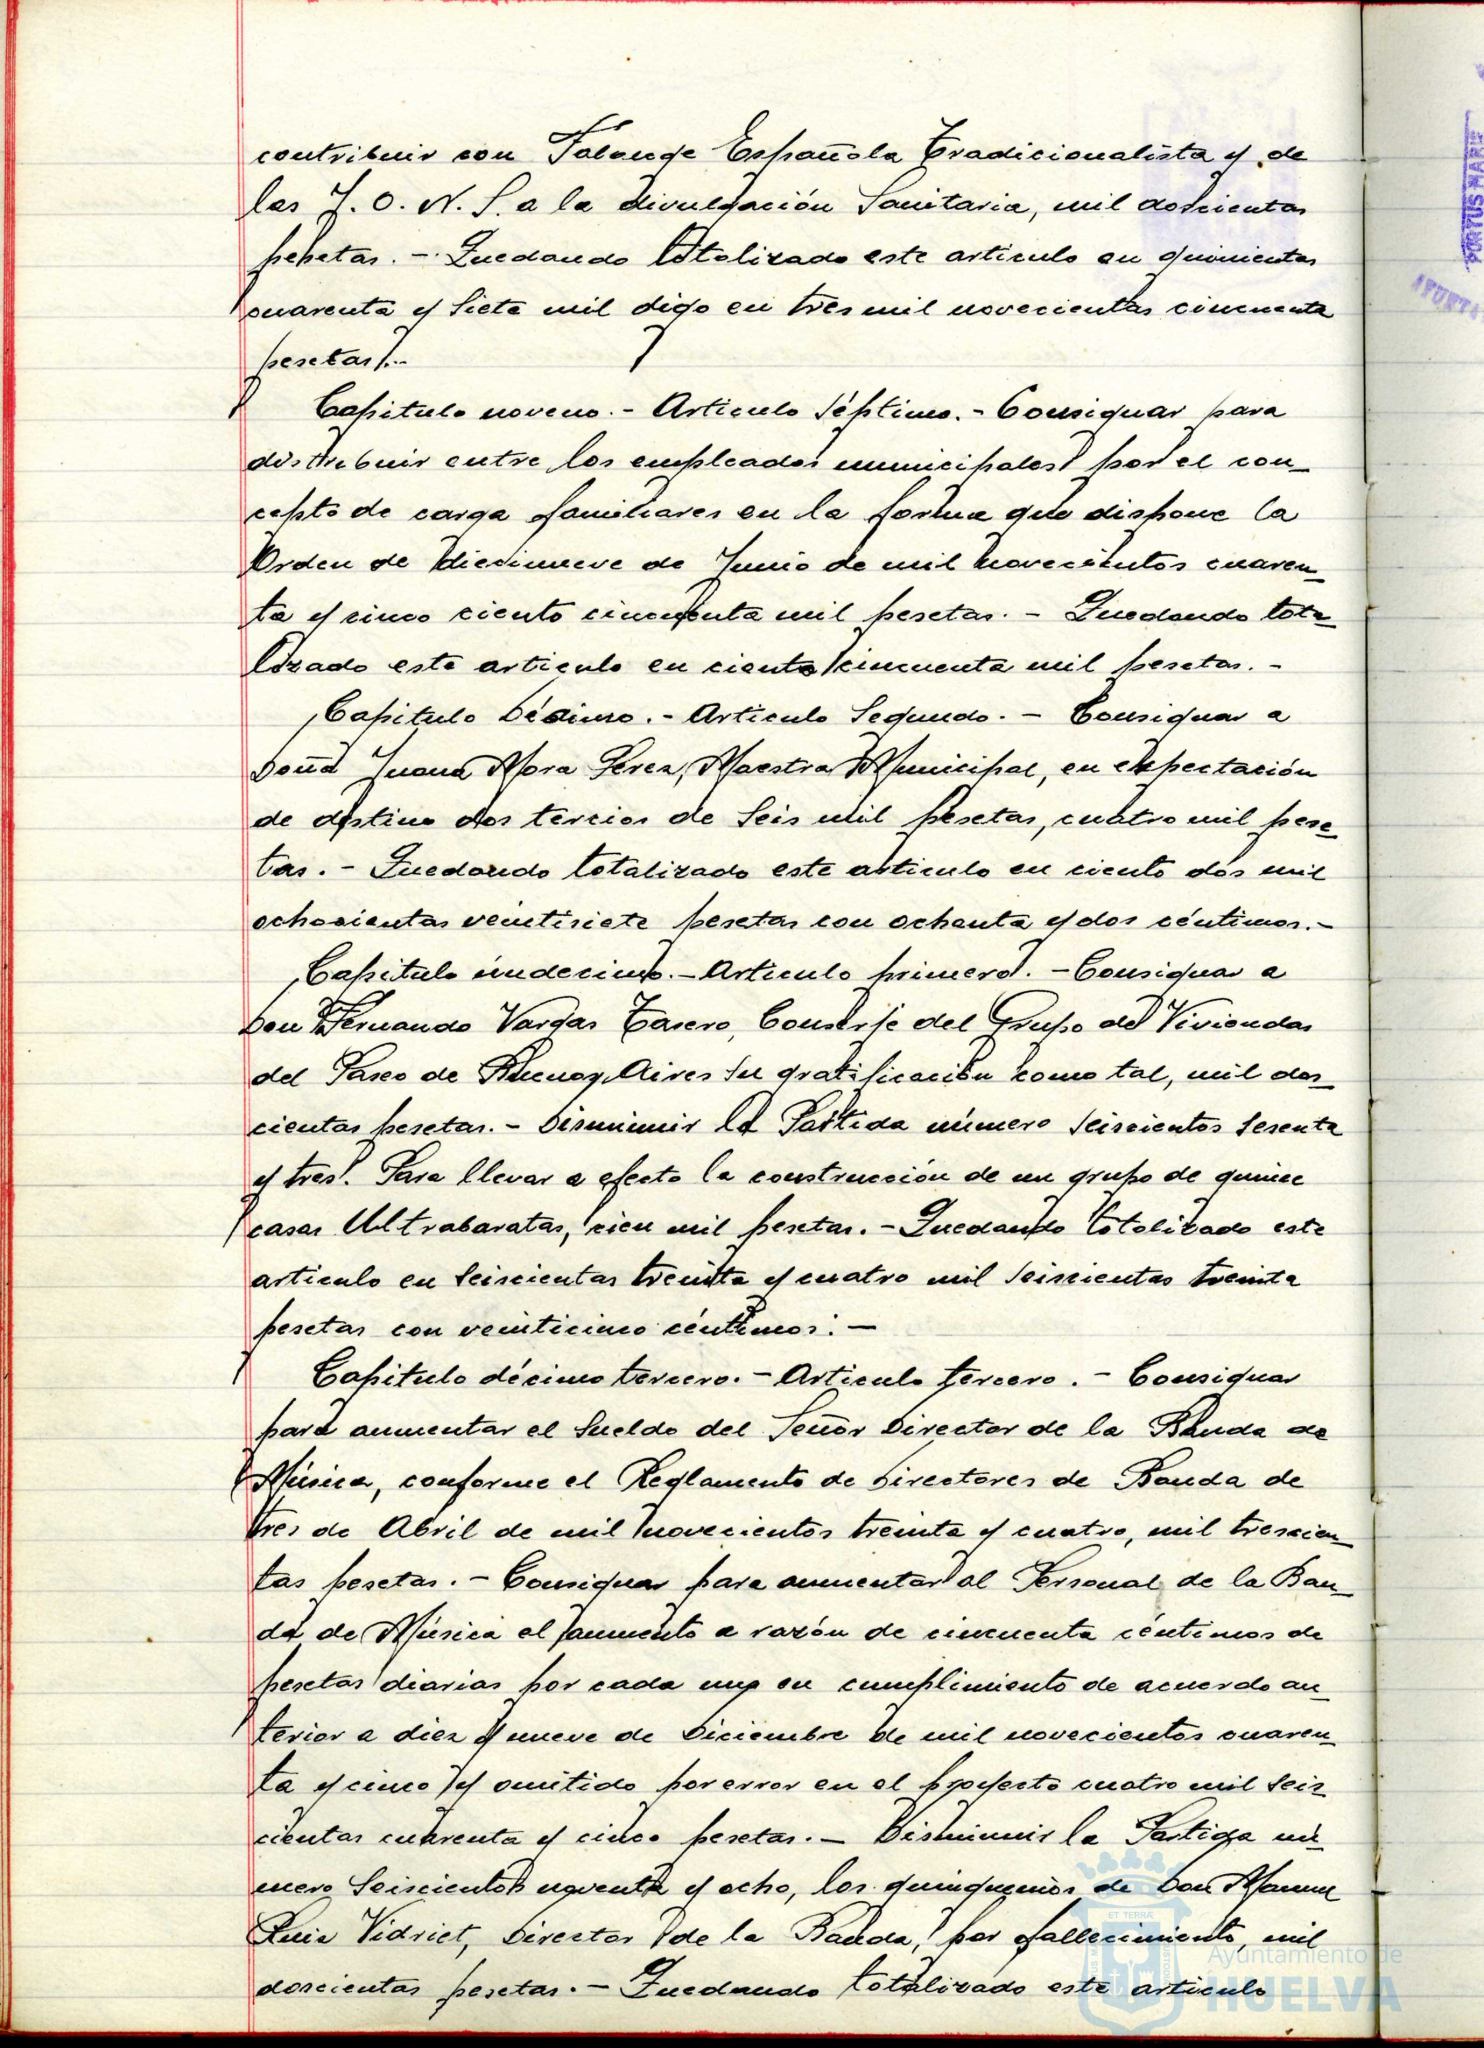 contribuir con Falange Española Tradicionalista y de
las J. O. N. S. a la divulgación Sanitaria, mil doscientas
pesetas. - Quedando totalizado este articulo en quinientas
cuarenta y siete mil digo en tres mil novecientas cincuenta
pesetas.-
Capitulo noveno. - Articulo Séptimo. - Consignar para
distribuir entre los empleados municipales por el con-
cepto de carga familiares en la forma que dispone la
Orden de diecinueve de Junio de mil novecientos cuaren-
ta y cinco ciento cincuenta mil pesetas. - Quedando tota-
lizado este articulo en ciento cincuenta mil pesetas. -
Capitulo Décimo. - Articulo Segundo. - Consignar a
Doña Juana Mora Perez, Maestra Municipal, en expectación
de destino dos tercios de Seis mil pesetas, cuatro mil pese-
tas. - Quedando totalizado este articulo en ciento dos mil
ochocientas veintisiete pesetas con ochenta y dos céntimos. -
Capitulo undecimo. - Articulo primero. - Consignar a
Don Fernando Vargas Tasero, Conserje del Grupo de Viviendas
del Paseo de Buenos Aires su gratificación como tal, mil dos-
cientas pesetas. - Disminuir la Partida número seiscientos sesenta
y tres. Para llevar a efecto la construcción de un grupo de quince
casas Ultrabaratas, cien mil pesetas. - Quedando totalizado este
articulo en seiscientas treinta y cuatro mil seiscientas treinta
pesetas con veinticinco céntimos. -
Capitulo décimo tercero. - Articulo tercero. - Consignar
para aumentar el Sueldo del Señor Director de la Banda de
Música, conforme el Reglamento de Directores de Banda de
tres de Abril de mil novecientos treinta y cuatro, mil trescien-
tas pesetas. - Consignar para aumentar al Personal de la Ban-
da de Música el aumento a razón de cincuenta céntimos de
pesetas diarias por cada uno en cumplimiento de acuerdo an-
terior a diez y nueve de Diciembre de mil novecientos cuaren-
ta y cinco y omitido por error en el proyecto cuatro mil seis
cientas cuarenta y cinco pesetas. - Disminuir la Partida nú-
mero Seiscientos noventa y ocho, los quinquenios de Don Manuel
Ruiz Vidriet, Director de la Banda, por fallecimiento, mil
doscientas pesetas. - Quedando totalizado este articulo
ET TERRÆ
Ayuntamiento de
HUELVA